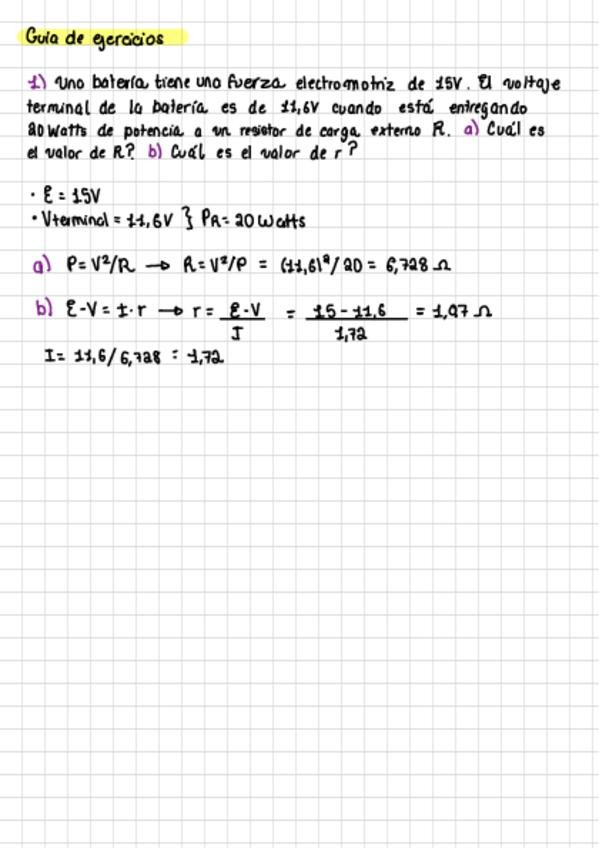 Guía de ejercicios
1) Una batería tiene una fuerza electromotriz de 15V. El voltaje
terminal de la batería es de 11,6V cuando está entregando
20 Watts de potencia a un resistor de carga externo R. a) Cuál es
el valor de R? b) Cuál es el valor de r?
· ε = 15V
· Vterminal = 11,6V } PR = 20 Watts
a) P = V²/R → R = V²/P = (11,6)²/20 = 6,728 Ω
b) ε-V = I·r → r = ε-V / I = 15-11,6 / 1,72 = 1,97 Ω
I = 11,6/6,728 = 1,72